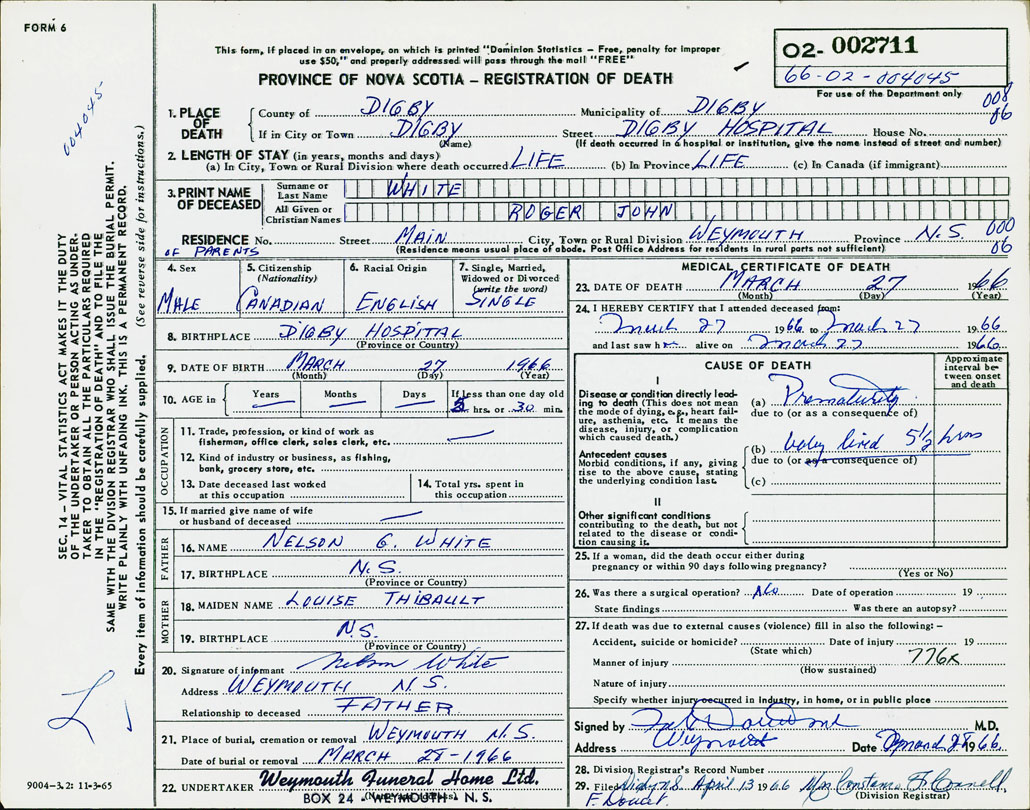 FORM 6
This form, if placed in an envelope, on which is printed "Dominion Statistics – Free, penalty for improper
use $50," and properly addressed will pass through the mail "FREE"
PROVINCE OF NOVA SCOTIA – REGISTRATION OF DEATH
02- 002711
66-02-004045
For use of the Department only
004045
SEC. 14 – VITAL STATISTICS ACT MAKES IT THE DUTY
OF THE UNDERTAKER OR PERSON ACTING AS UNDER-
TAKER TO OBTAIN ALL THE PARTICULARS REQUIRED
IN THE "REGISTRATION OF DEATH" AND TO FILE THE
SAME WITH THE DIVISION REGISTRAR WHO SHALL ISSUE THE BURIAL PERMIT.
WRITE PLAINLY WITH UNFADING INK. THIS IS A PERMANENT RECORD.
Every item of information should be carefully supplied. (See reverse side for instructions.)
1. PLACE OF DEATH
County of DIGBY Municipality of DIGBY 008
06
If in City or Town DIGBY Street DIGBY HOSPITAL House No.
(Name) (If death occurred in a hospital or institution, give the name instead of street and number)
2. LENGTH OF STAY (in years, months and days)
(a) In City, Town or Rural Division where death occurred LIFE (b) In Province LIFE (c) In Canada (if immigrant)
3. PRINT NAME OF DECEASED
Surname or Last Name WHITE
All Given or Christian Names ROGER JOHN
RESIDENCE No. Street MAIN City, Town or Rural Division WEYMOUTH Province N.S. 000
06
OF PARENTS (Residence means usual place of abode. Post Office Address for residents in rural parts not sufficient)
4. Sex
MALE
5. Citizenship
(Nationality)
CANADIAN
6. Racial Origin
ENGLISH
7. Single, Married,
Widowed or Divorced
(write the word)
SINGLE
8. BIRTHPLACE DIGBY HOSPITAL
(Province or Country)
9. DATE OF BIRTH MARCH 27 1966
(Month) (Day) (Year)
10. AGE in Years Months Days If less than one day old
5 hrs. or 30 min.
OCCUPATION
11. Trade, profession, or kind of work as
fisherman, office clerk, sales clerk, etc.
12. Kind of industry or business, as fishing,
bank, grocery store, etc.
13. Date deceased last worked
at this occupation
14. Total yrs. spent in
this occupation
15. If married give name of wife
or husband of deceased
FATHER
16. NAME NELSON G. WHITE
17. BIRTHPLACE N.S.
(Province or Country)
MOTHER
18. MAIDEN NAME LOUISE THIBAULT
19. BIRTHPLACE N.S.
(Province or Country)
20. Signature of informant Nelson White
Address WEYMOUTH N.S.
Relationship to deceased FATHER
21. Place of burial, cremation or removal WEYMOUTH N.S.
Date of burial or removal MARCH 28-1966
22. UNDERTAKER Weymouth Funeral Home Ltd.
BOX 24 - WEYMOUTH, N. S.
9004-3,2: 11-3-65
MEDICAL CERTIFICATE OF DEATH
23. DATE OF DEATH MARCH 27 1966
(Month) (Day) (Year)
24. I HEREBY CERTIFY that I attended deceased from:
March 27 1966 to March 27 1966
and last saw h alive on March 27 1966
CAUSE OF DEATH
Approximate
interval be-
tween onset
and death
I
Disease or condition directly lead-
ing to death (This does not mean
the mode of dying, e.g., heart fail-
ure, asthenia, etc. It means the
disease, injury, or complication
which caused death.)
(a) Prematurity
due to (or as a consequence of)
Antecedent causes
Morbid conditions, if any, giving
rise to the above cause, stating
the underlying condition last.
(b) baby lived 5 1/2 hrs
due to (or as a consequence of)
(c)
II
Other significant conditions
contributing to the death, but not
related to the disease or condi-
tion causing it.
25. If a woman, did the death occur either during
pregnancy or within 90 days following pregnancy?
(Yes or No)
26. Was there a surgical operation? No Date of operation 19
State findings Was there an autopsy?
27. If death was due to external causes (violence) fill in also the following: –
Accident, suicide or homicide? Date of injury 19
(State which)
776X
Manner of injury
(How sustained)
Nature of injury
Specify whether injury occurred in industry, in home, or in public place
Signed by M.D.
Address Weymouth Date March 28 1966
28. Division Registrar's Record Number
29. Filed Digby N.S. April 13 1966 Mrs Constance F. Connell
(Division Registrar)
F. Doucet